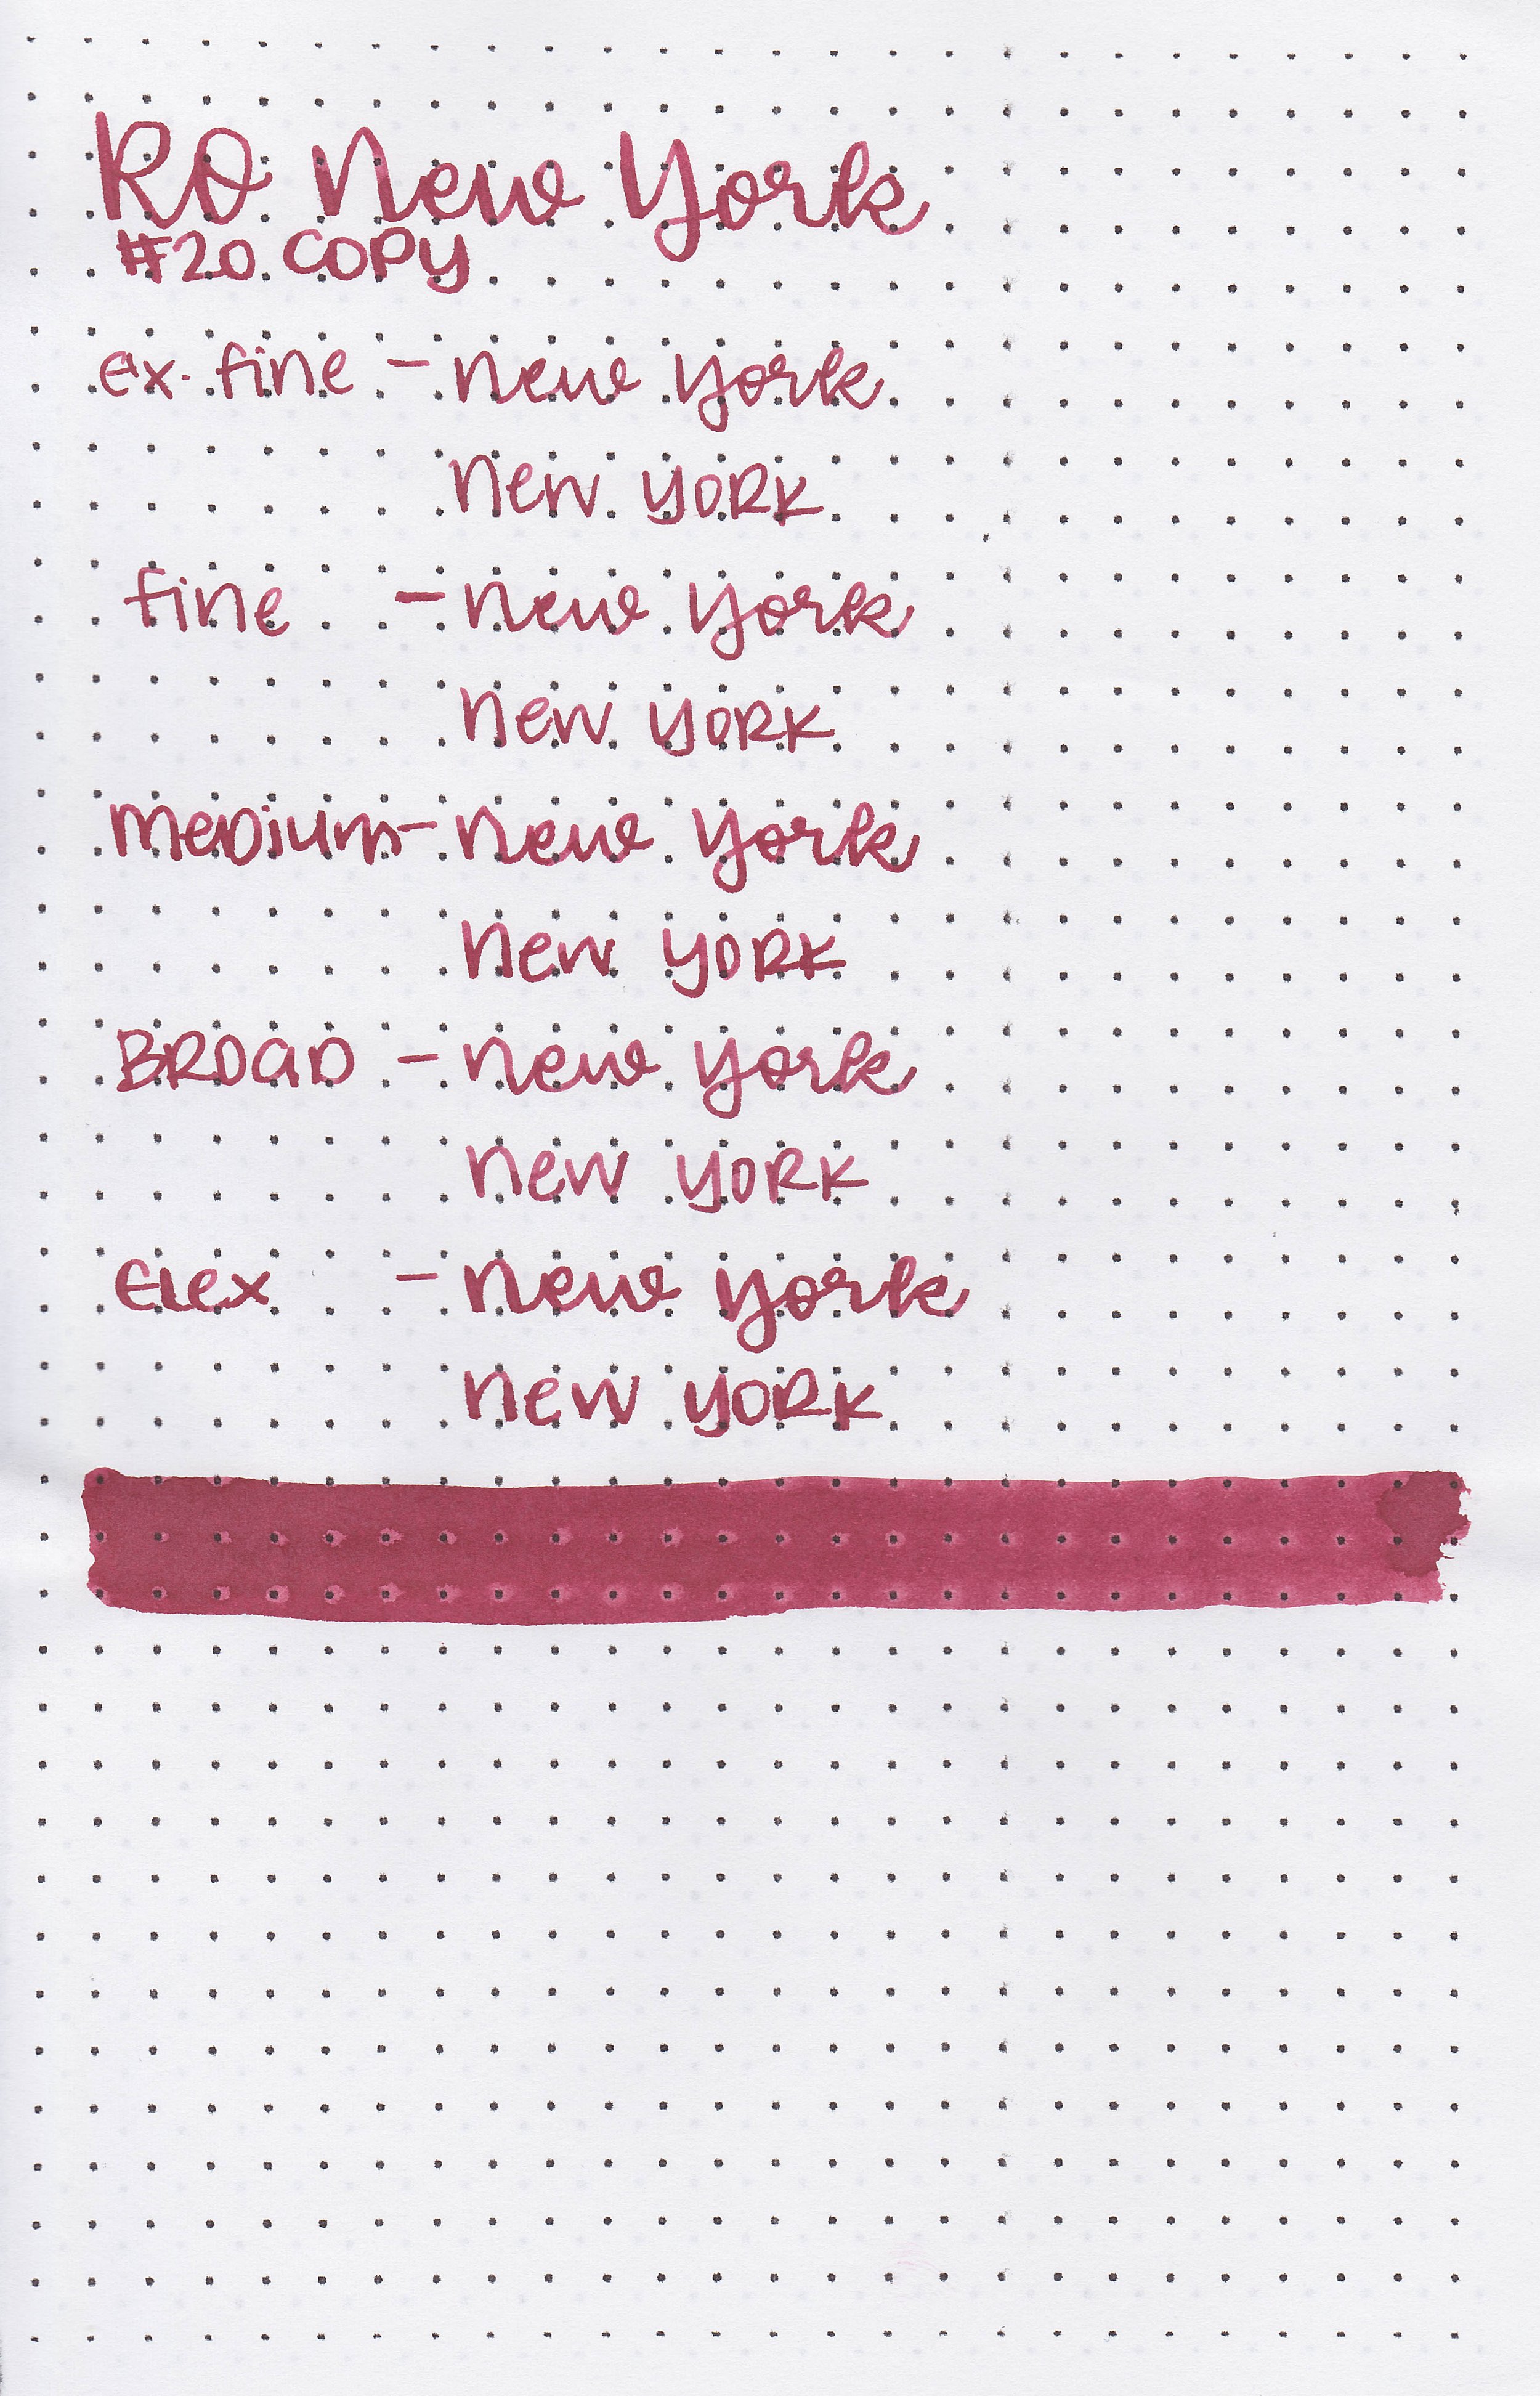 RO New York
#20 COPY
ex. fine - new york
new york
fine - new york
new york
medium - new york
new york
BROAD - new york
new york
Flex - new york
new york